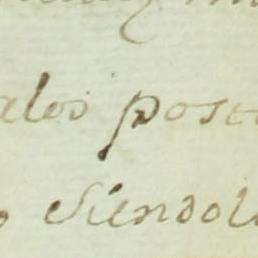 alos post
o siendol